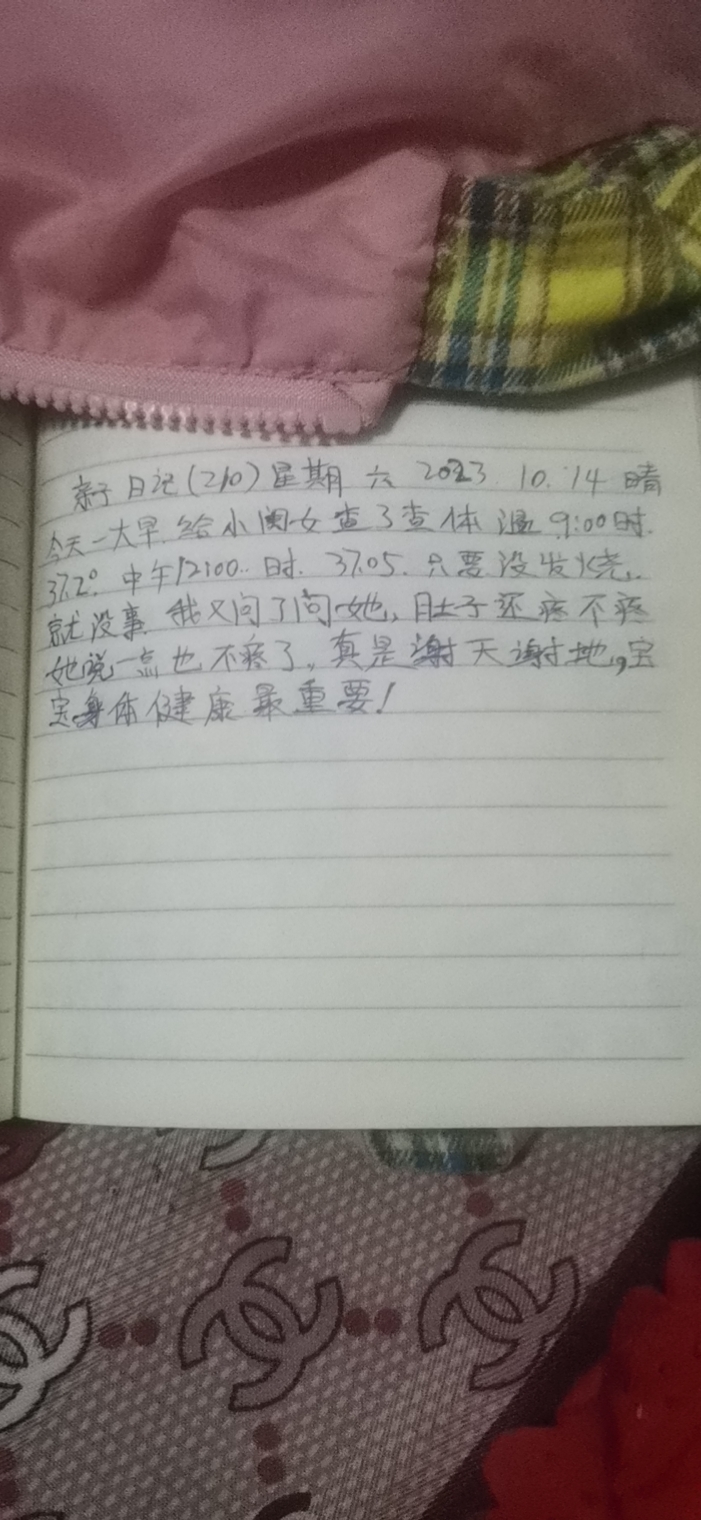 亲子日记(210)星期六 2023.10.14 晴
今天一大早.给小闺女查了查体温 9:00时.
37.2° 中午12:00..时. 37.05.只要没发烧,.
就没事.我又问了问她,肚子还疼不疼
她说一点也不疼了,真是谢天谢地,宝
宝身体健康最重要!